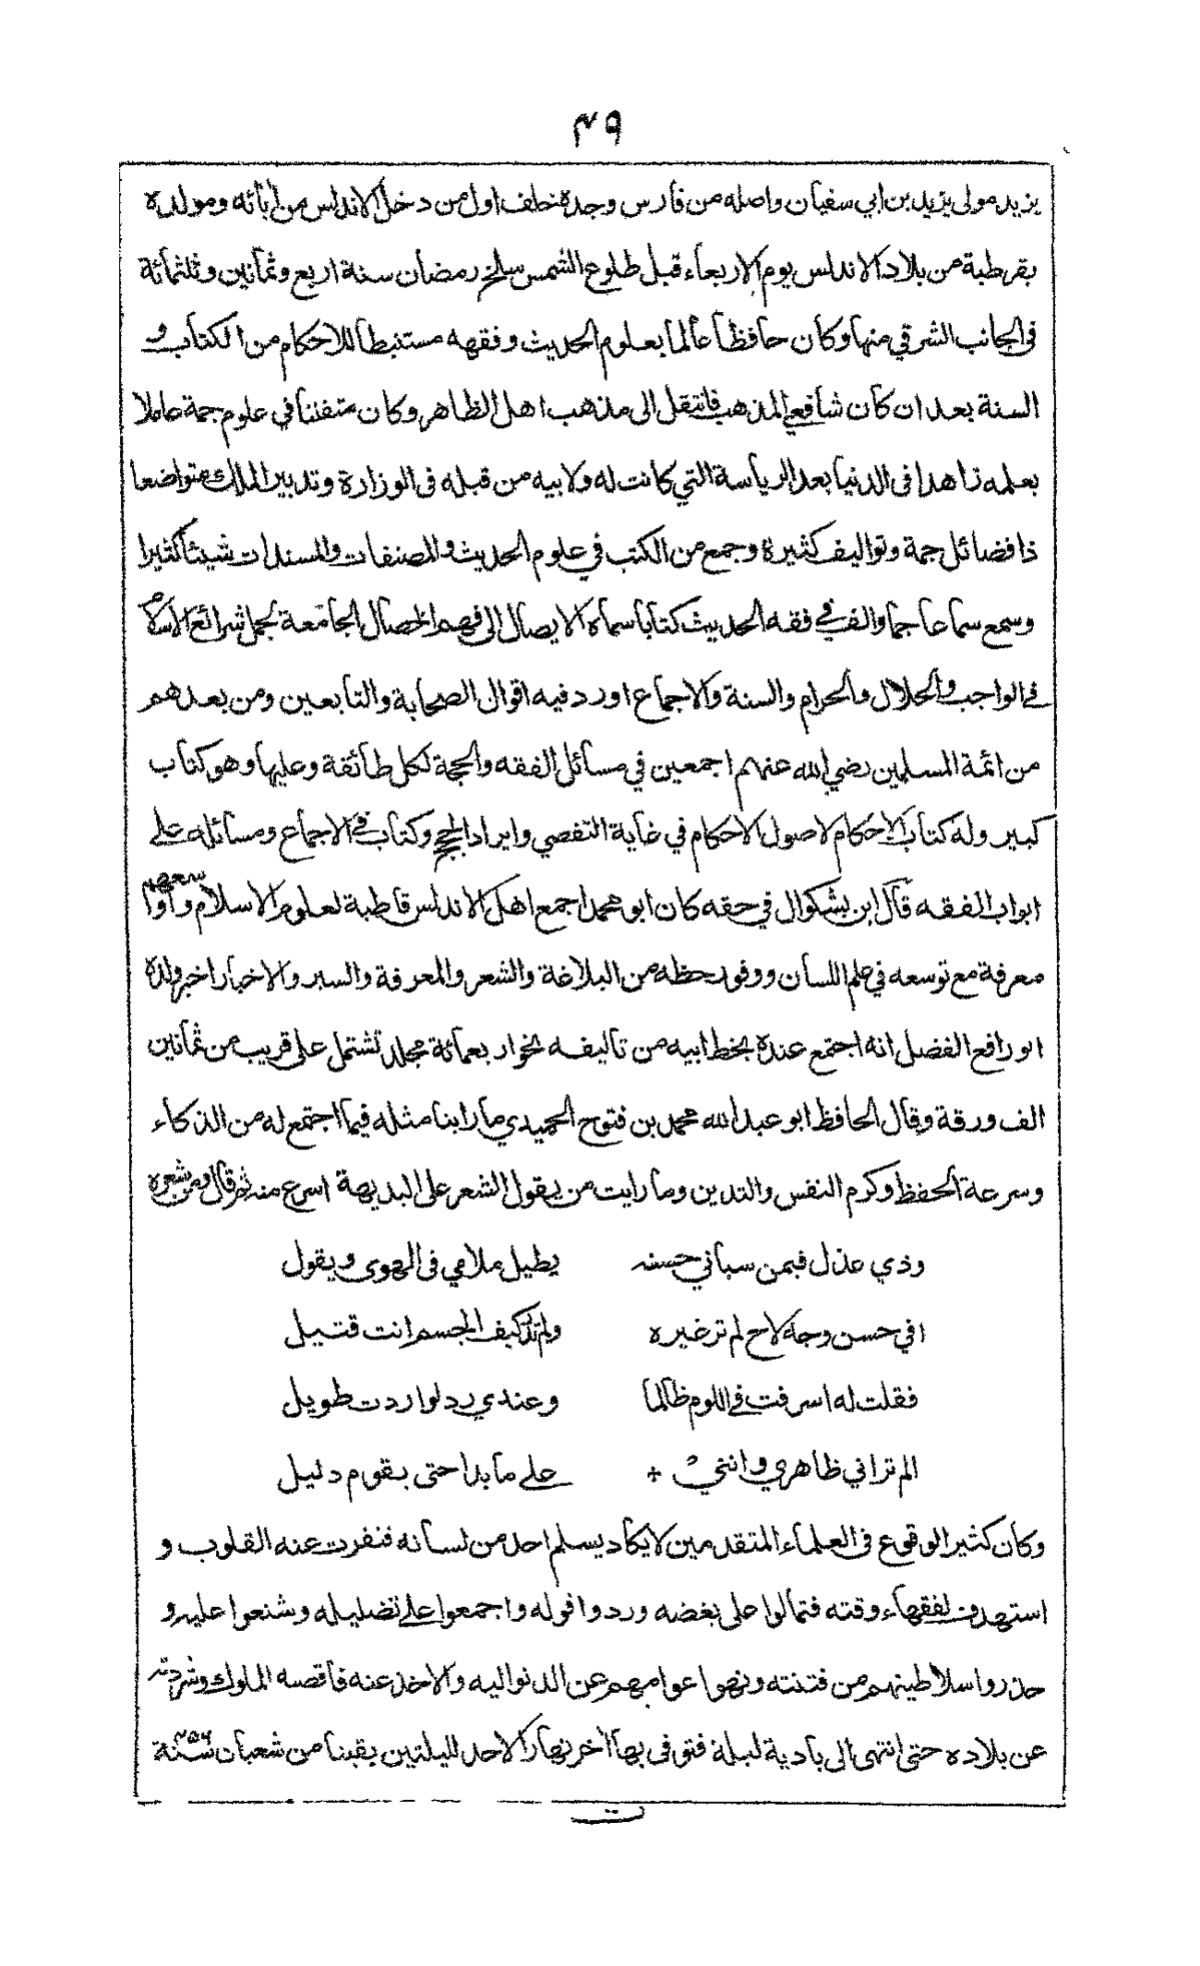 ٤٩
يزيد مولى يزيد بن ابي سفيان واصله من فارس وجده خلف اول من دخل الاندلس من آبائه ومولده
بقرطبة من بلاد الاندلس يوم الاربعاء قبل طلوع الشمس سلخ رمضان سنة اربع وثمانين وثلثمائة
فى الجانب الشرقي منها وكان حافظا عالما بعلوم الحديث وفقهه مستنبطا للاحكام من الكتاب و
السنة بعد ان كان شافعي المذهب فانتقل الى مذهب اهل الظاهر وكان متفننا في علوم جمة عاملا
بعلمه زاهدا فى الدنيا بعد الرياسة التي كانت له ولابيه من قبله فى الوزارة وتدبير الملك متواضعا
ذا فضائل جمة وتواليف كثيرة وجمع من الكتب في علوم الحديث والمصنفات والمسندات شيئا كثيرا
وسمع سماعا جما والف في فقه الحديث كتابا سماه الايصال الى فهم الخصال الجامعة لجمل شرائع الاسلام
في الواجب والحلال والحرام والسنة والاجماع اورد فيه اقوال الصحابة والتابعين ومن بعدهم
من ائمة المسلمين رضي الله عنهم اجمعين في مسائل الفقه والحجة لكل طائفة وعليها وهو كتاب
كبير وله كتاب الاحكام لاصول الاحكام في غاية التقصي وايراد الحجج وكتاب في الاجماع ومسائله على
ابواب الفقه قال ابن بشكوال في حقه كان ابو محمد اجمع اهل الاندلس قاطبة لعلوم الاسلام واوسعهم
معرفة مع توسعه في علم اللسان ووفور حظه من البلاغة والشعر والمعرفة والسير والاخبار اخبر ولده
ابو رافع الفضل انه اجتمع عنده بخط ابيه من تاليفه نحو اربعمائة مجلد تشتمل على قريب من ثمانين
الف ورقة وقال الحافظ ابو عبد الله محمد بن فتوح الحميدي ما راينا مثله فيما اجتمع له من الذكاء
وسرعة الحفظ وكرم النفس والتدين وما رايت من يقول الشعر على البديهة اسرع منه ثم قال ومن شعره
وذي عذل فيمن سباني حسنه يطيل ملامي فى الهوى ويقول
افي حسن وجه لاح لم تر غيره ولم تدر كيف الجسم انت قتيل
فقلت له اسرفت في اللوم ظالما وعندي رد لو اردت طويل
الم تر اني ظاهري وانني على ما بدا حتى يقوم دليل
وكان كثير الوقوع فى العلماء المتقدمين لا يكاد يسلم احد من لسانه فنفرت عنه القلوب و
استهدف لفقهاء وقته فتمالوا على بغضه وردوا قوله واجمعوا على تضليله وشنعوا عليه و
حذروا سلاطينهم من فتنته ونهوا عوامهم عن الدنو اليه والاخذ عنه فاقصته الملوك وشردته
عن بلاده حتى انتهى الى بادية لبلة فتوفى بها آخر نهار الاحد لليلتين بقيتا من شعبان سنة ٤٥٦
ت